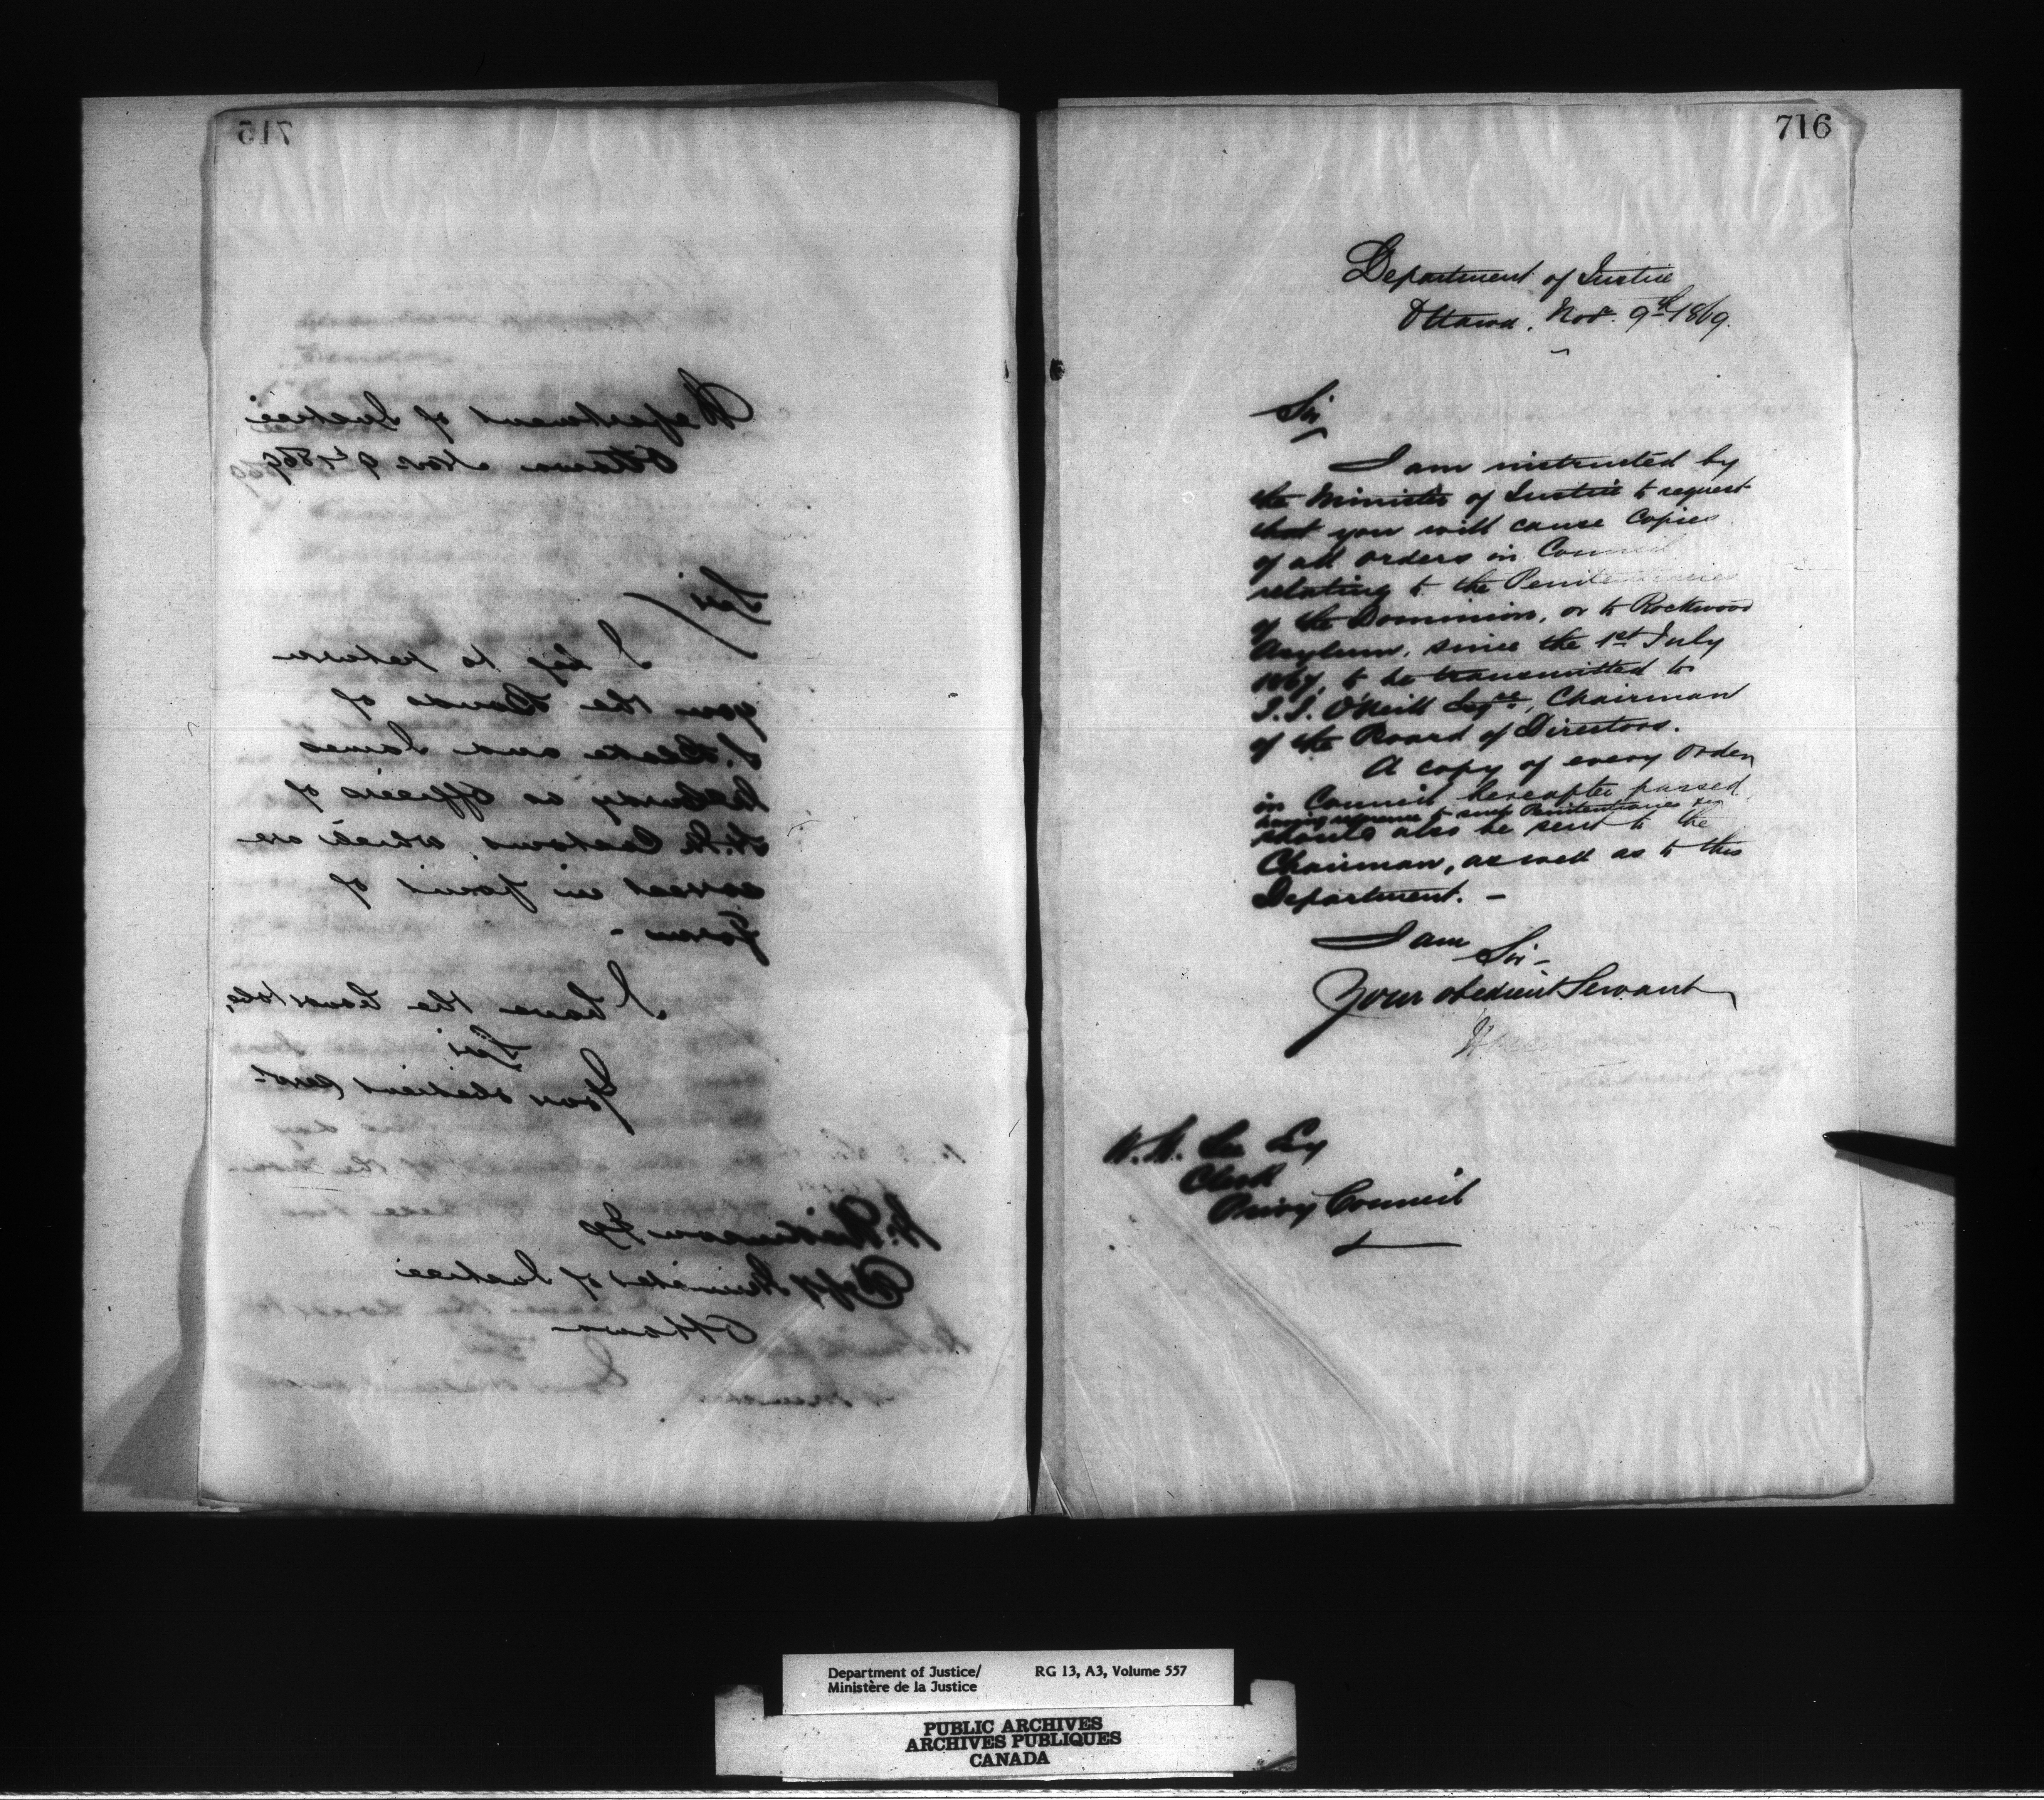 715
Department of Justice
Ottawa Nov 9th 1869
Sir/
I beg to return
you the Bonds of
J. and James
as Officers of
H. M. Customs, which are
correct in point of
Form -
I have the honor to be,
Sir
Your obedient Servt
Esq
Depy Minister of Justice
Ottawa
716
Department of Justice
Ottawa, Novr. 9th 1869.
Sir
I am instructed by
the Minister of Justice to request
that you will cause Copies
of all orders in Council
relating to the Penitentiaries
of the Dominion, or to Rockwood
Asylum, since the 1st July
1867, to be transmitted to
J. J. O'Neill Esqre, Chairman
of the Board of Directors.
A copy of every Order
in Council hereafter passed
having reference to such Penitentiaries &c
should also be sent to the
Chairman, as well as to this
Department. -
I am
Sir -
Your obedient Servant
W. H. Lee Esq
Clerk
Privy Council
Department of Justice/ RG 13, A3, Volume 557
Ministère de la Justice
PUBLIC ARCHIVES
ARCHIVES PUBLIQUES
CANADA